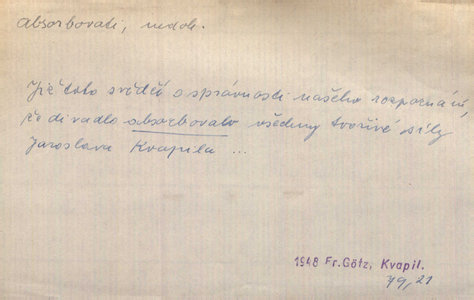 absorbovati, nedok.
Již toto svědčí o správnosti našeho rozpoznání,
že divadlo absorbovalo všechny tvořivé síly
Jaroslava Kvapila ...
1948 Fr. Götz, Kvapil.
79/21